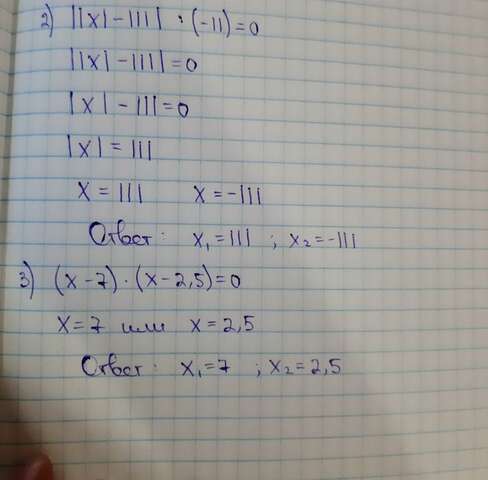 2) ||x| - 111| : (-11) = 0
||x| - 111| = 0
|x| - 111 = 0
|x| = 111
x = 111 x = -111
Ответ: x₁ = 111 ; x₂ = -111
3) (x - 7) · (x - 2,5) = 0
x = 7 или x = 2,5
Ответ: x₁ = 7 ; x₂ = 2,5